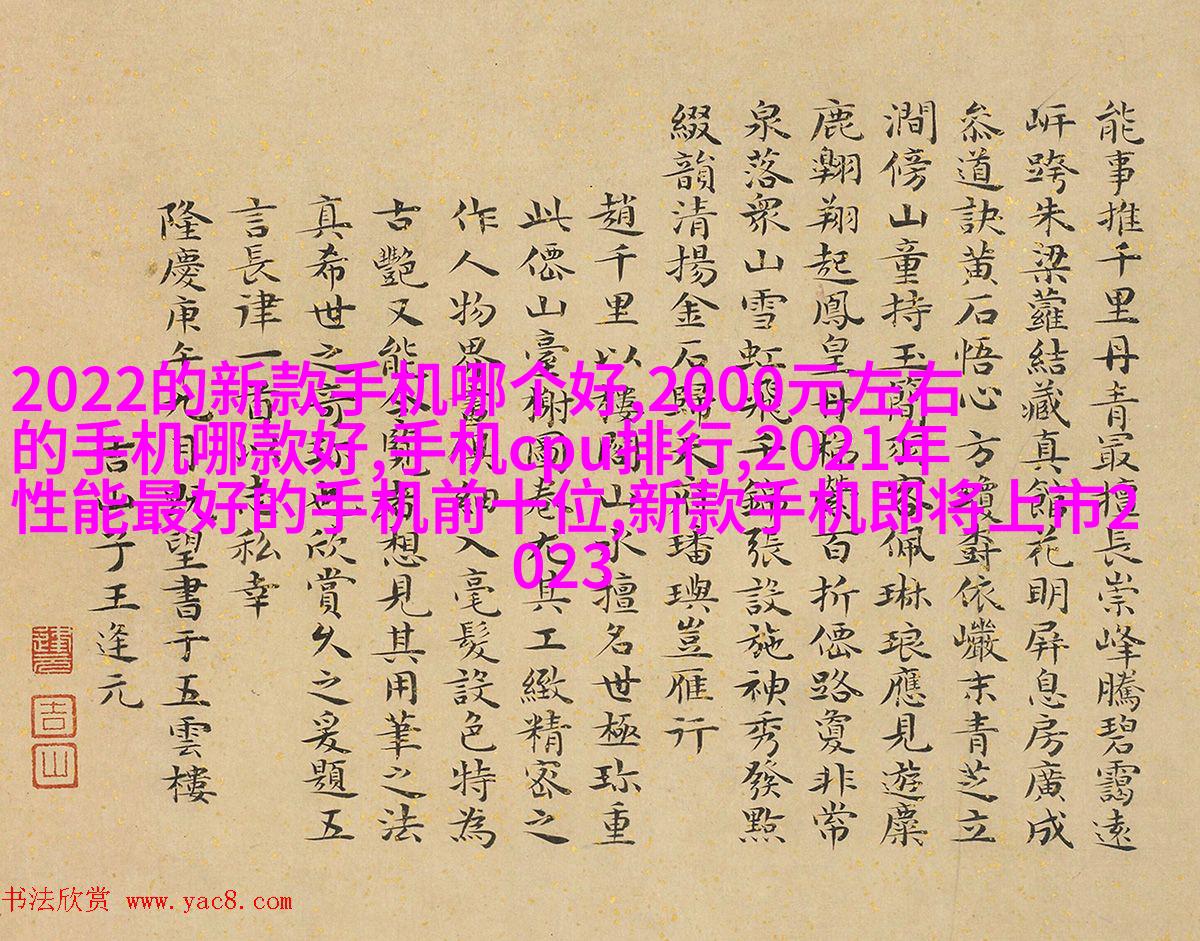 2022的新款手机哪个好,2000元左右
的手机哪款好,手机cpu排行,2021年
性能最好的手机前十位,新款手机即将上市2
023
能事推千里丹青最擅長崇峰騰碧靄遠
岍跨朱梁蘿結藏真館花明屏息房廣成
叅道訣黃石悟心方依巘末青芝立
澗傍山童持玉佩琳琅應見遊麋
鹿翱翔起鳳皇丹百折僊路夐非常
泉落衆山雪虹飛千張設施神秀發點
綴韻清揚金石歸天璠璵豈雁行
趙千里以樓閣山水擅名世極珎重
此僊山臺榭圖卷尤具工緻精密之
作人物界畫細入毫髮設色特為
古艷又能令覽者想見其用筆之法
真希世之欣賞久之爰題五
言長律一首私幸
隆慶庚午九月既望書于五雲樓
吉山子王逢元
吉山
书法欣赏 www.yac8.com